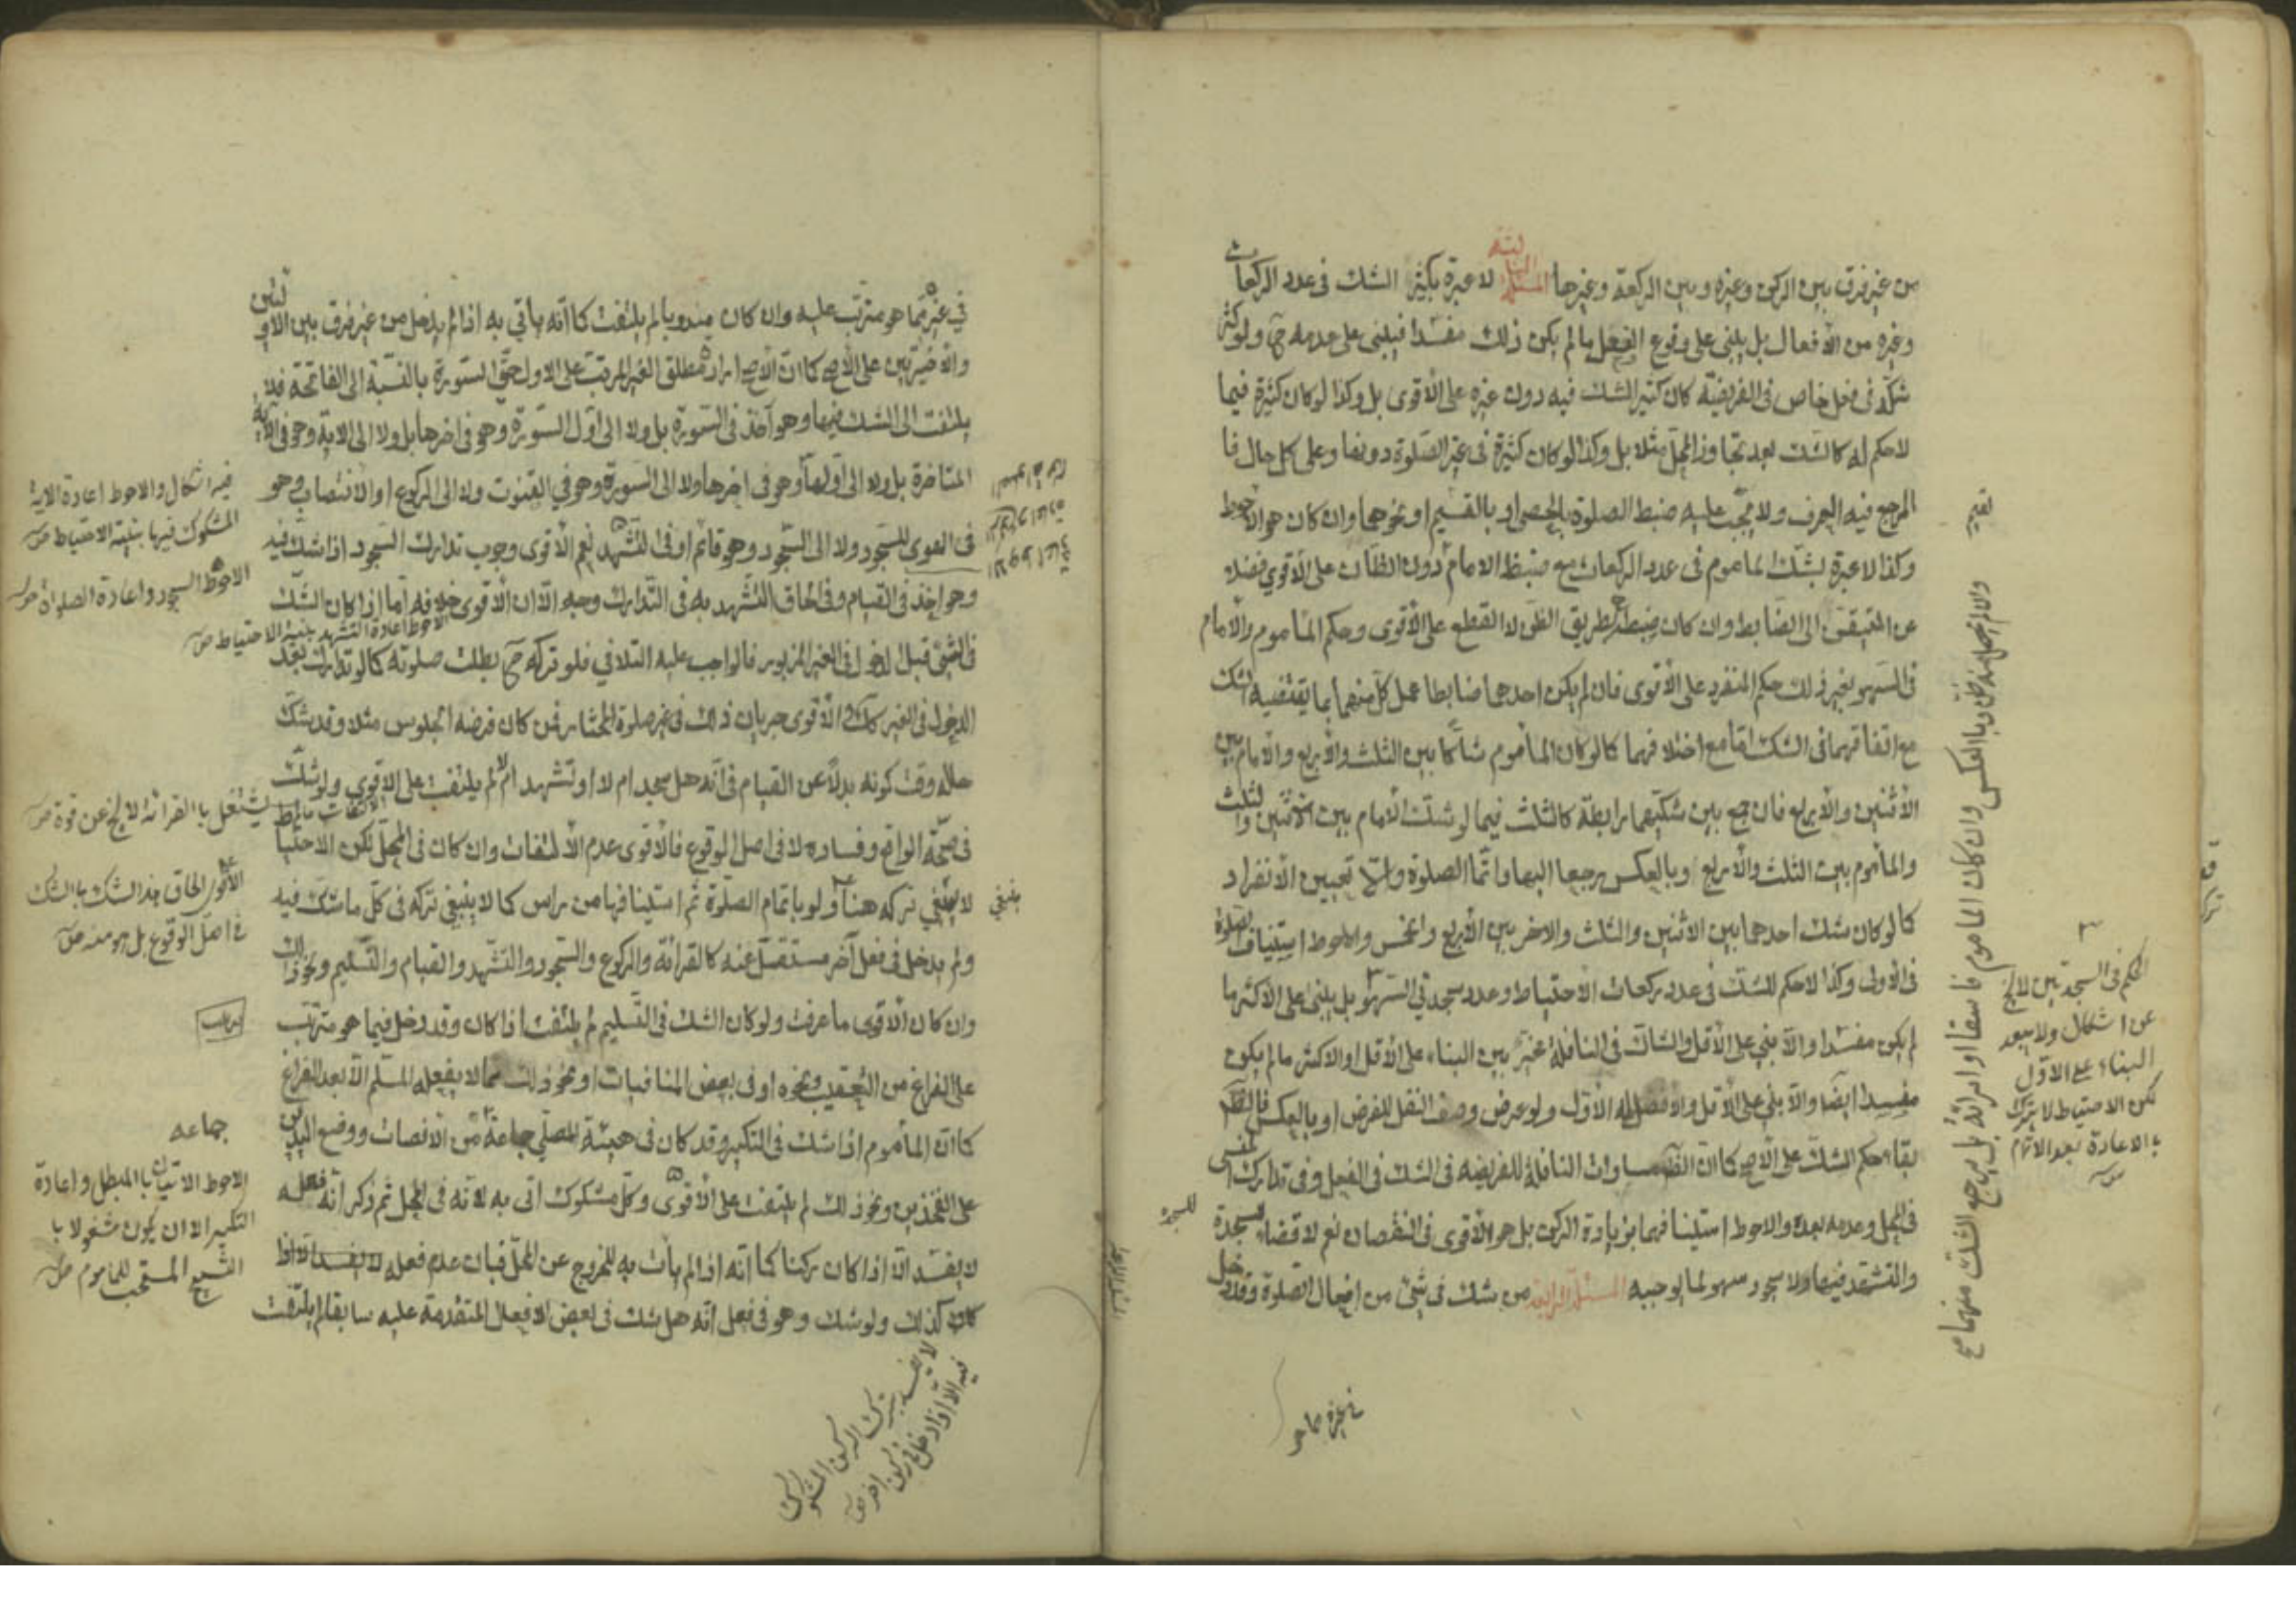 من غير فرق بين الركن وغيره وبين الركعة وغيرها المسئلة الثالثة لا عبرة بكثير الشك في عدد الركعات
وغيره من الأفعال بل يبني على وقوع الفعل ما لم يكن ذلك مفسدا فيبني على عدمه ح ولو كثر
شكه في فعل خاص في الفريضة كان كثير الشك فيه دون غيره على الأقوى بل وكذا لو كان كثرة فيما
لا حكم له كالشك بعد تجاوز المحل مثلا بل وكذا لو كان كثرة في غير الصلوة دونها وعلى كل حال فا
المرجع فيه العرف ولا يجب عليه ضبط الصلوة بالحصى او بالقسيم او نحوهما وان كان هو الأحوط
وكذا لا عبرة بشك الماموم في عدد الركعات مع ضبط الامام دون الظان على الأقوى فضلا
عن المتيقن الى الضابط وان كان ضبطه بطريق الظن لا القطع على الأقوى وحكم الماموم والأمام
في السهو بغير ذلك حكم المنفرد على الأقوى فان لم يكن احدهما ضابطا عمل كل منهما بما يقتضيه الشك
مع اتفاقهما في الشك اما مع اختلافهما كما لو كان المأموم شاكا بين الثلث والأربع والأمام بين
الأثنين والأربع فان جمع بين شكيهما رابطة كالثلث فيما لو شك الأمام بين الاثنين والثلث
والمأموم بين الثلث والأربع او بالعكس رجعا اليها واتما الصلوة والا تعيين الأنفراد
كما لو كان شك احدهما بين الاثنين والثلث والاخر بين الأربع والخمس والاحوط استيناف الصلوة
في الأولى وكذا لا حكم للشك في عدد ركعات الأحتياط وعدد سجدتي السهو بل يبنى على الأكثر ما
لم يكن مفسدا والا بني على الأقل والشاك في النافلة مخير بين البناء على الأقل او الاكثر ما لم يكن
مفسدا ايضا والا بني على الأقل والافضل له الأول ولو عرض وصف النفل للفرض او بالعكس فالظ
بقاء حكم الشك على الأصح كما ان الظ مساوات النافلة للفريضه في الشك في الفعل وفي تدارك المنسي
في المحل وعدمه بعده والاحوط استينافها بزيادة الركن بل هو الأقوى في النقصان نعم لا قضاء لسجدة
والتشهد فيها ولا سجود سهو لما يوجبه المسئلة الرابعة من شك في شئ من افعال الصلوة وقد دخل
وان كان الماموم فاسقا او امرأة بل يرجع الشاك منهما مع
الحكم في السجدتين لا يخ
عن اشكال ولا يبعد
البناء على الاول
لكن الاحتياط لا يترك
بالاعادة بعد الاتمام
في غيره مما هو
في غيره مما هو مترتب عليه وان كان مندوبا لم يلتفت كما انه يأتي به اذا لم يدخل من غير فرق بين الاولتين
والأخيرتين على الأصح كما ان الأصح ارادة مطلق الغير المرتب على الاول حتى السورة بالنسبة الى الفاتحة فلا
يلتفت الى الشك فيها وهو آخذ في السورة بل ولا الى اول السورة وهو في اخرها بل ولا الى الاية وهو في الآية
المتاخرة بل ولا الى اولها وهو في اخرها ولا الى السورة وهو في القنوت ولا الى الركوع او الأنتصاب وهو
في الهوى للسجود ولا الى السجود وهو قائم او في التشهد نعم الأقوى وجوب تدارك السجود اذا شك فيه
وهو اخذ في القيام وفي الحاق التشهد به في التدارك وجه الا ان الأقوى خلافه اما اذا كان الشك
في الشئ قبل الدخول في الغير المزبور فالواجب عليه التلافي فلو تركه ح بطلت صلوته كما لو تدارك بعد
الدخول في الغير كك والأقوى جريان ذلك في غير صلوة المختار فمن كان فرضه الجلوس مثلا وقد شك
حاله وقت كونه بدلا عن القيام في انه هل سجد ام لا او تشهد ام لا لم يلتفت على الاقوى ولو شك
في صحة الواقع وفساده لا في اصل الوقوع فالأقوى عدم الألتفات وان كان في المحل لكن الاحتيا
لا ينبغي تركه هنا ولو باتمام الصلوة ثم استينافها من راس كما لا ينبغي تركه في كل ما شك فيه
ولم يدخل في فعل آخر مستقل عنه كالقرائة والركوع والسجود والتشهد والقيام والتسليم ونحو ذلك
وان كان الأقوى ما عرفت ولو كان الشك في التسليم لم يلتفت اذا كان وقد دخل فيما هو مترتب
على الفراغ من التعقيب ونحوه او في بعض المنافيات او نحو ذلك مما لا يفعله المسلم الا بعد الفراغ
كما ان المأموم اذا شك في التكبير وقد كان في هيئة المصلي جماعة من الأنصات ووضع اليدين
على الفخذين ونحو ذلك لم يلتفت على الأقوى وكل مشكوك اتى به لانه في المحل ثم ذكر انه فعله
لا يفسد الا اذا كان ركنا كما انه اذا لم يأت به للخروج عن المحل فبان عدم فعله لا يفسد الا اذا
كان كذلك ولو شك وهو في فعل انه هل شك في بعض الافعال المتقدمة عليه سابقا لم يلتفت
فيه اشكال والاحوط اعادة الاية
المشكوك فيها بنية الاحتياط
الاحوط السجود واعادة الصلواة
الاحوط اعادة التشهد بنية الاحتياط
ينبغي
الأقوى الحاق هذا الشك بالشك
في اصل الوقوع بل هو منه
جماعه
الاحوط الاتيان بالمبطل واعادة
التكبير الا ان يكون مشغولا با
التسبيح المستحب للماموم
لا يفسد بترك الركن المشكوك
فيه الا اذا دخل في ركن اخر